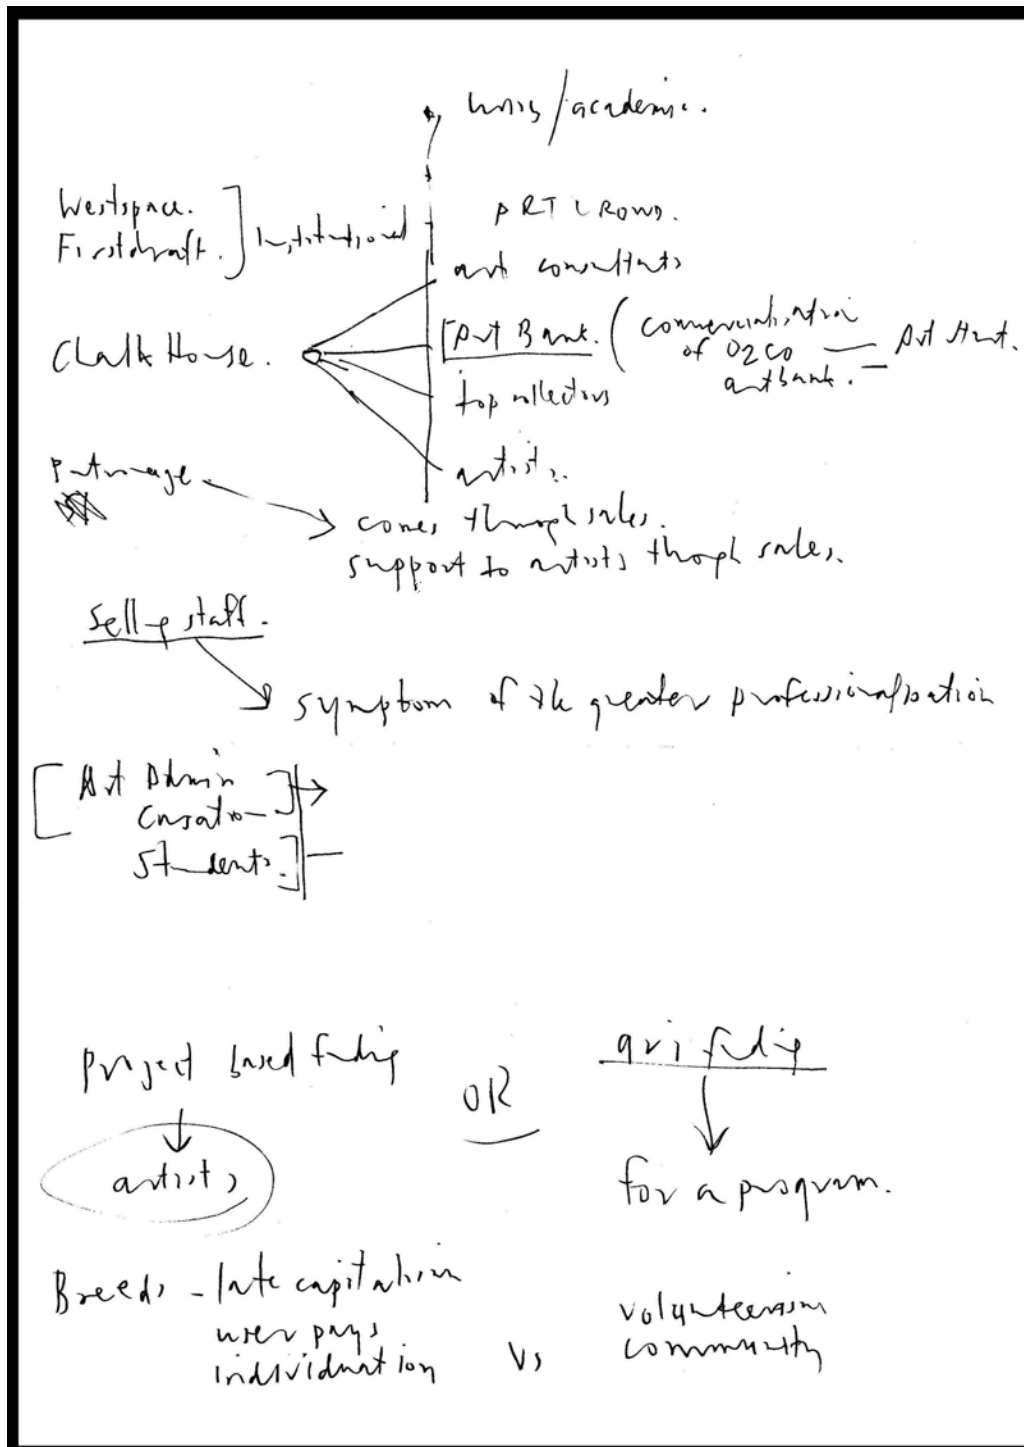 unis/academic.
Westspace.
Firstdraft.
Institutional
ART CROWD.
art consultants
Chalk House.
Art Bank.
(commercialisation
of
artbank.
top collectors
artists.
Patronage
comes through sales.
support to artists though sales.
Selling staff.
symptom of the greater professionalisation
Art Admin
Curation
Students.
project based funding
OR
ari funding
artists
for a program.
Breeds - late capitalism
user pays
individuation
Vs
volunteerism
community